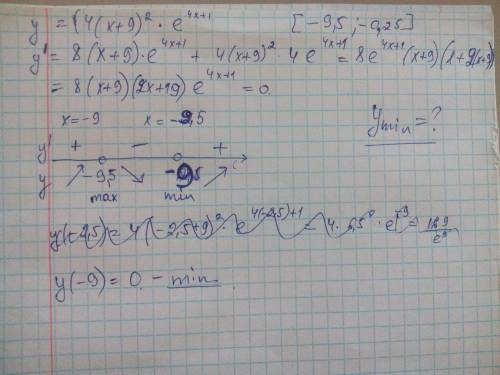 y = (4(x+9)² · e^{4x+1} [-9,5; -0,25]
y' = 8(x+9)·e^{4x+1} + 4(x+9)²·4e^{4x+1} = 8e^{4x+1}(x+9)(1+2(x+9))
= 8(x+9)(2x+19)e^{4x+1} = 0
x=-9 x=-9,5
y_{min} = ?
y' + - +
y -9,5 -9
max min
y(-2,5) = 4(-2,5+9)²·e^{4(-2,5)+1} = 4·6,5²·e^{-9} = 169/e⁹
y(-9) = 0 - min